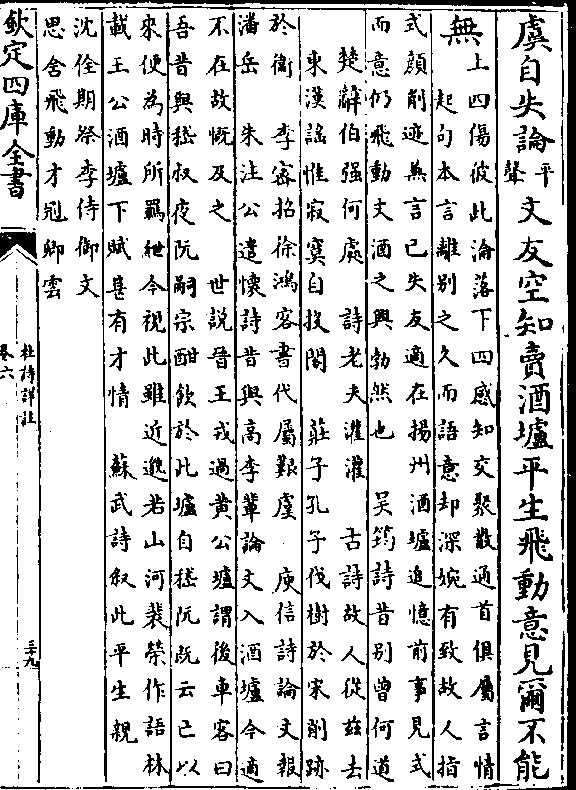 虞自失論平聲文友空知賣酒壚平生飛動意見爾不能
無
上四傷彼此淪落下四感知交聚散通首俱屬言情
起句本言離別之久而語意却深婉有致故人指
式顏削迹無言已失友適在揚州酒壚追憶前事見式
而意仍飛動文酒之興勃然也　吳筠詩昔別曾何道
楚辭伯强何處　詩老夫灌灌　古詩故人從兹去
東漢謡惟寂寞自投閣　莊子孔子伐樹於宋削跡
於衛　李密招徐鴻客書代屬艱虞　庾信詩論文報
潘岳　朱注公遣懷詩昔與高李輩論文入酒壚今適
不在故慨及之　世說晉王戎過黃公壚謂後車客曰
吾昔與嵇叔夜阮嗣宗酣飲於此壚自嵇阮既云已以
來便為時所羈紲今視此雖近邈若山河裴榮作語林
載王公酒壚下賦甚有才情　蘇武詩叙此平生親
沈佺期祭李侍御文
思舍飛動才冠卿雲
欽定四庫全書
杜詩詳註
卷六
三十九